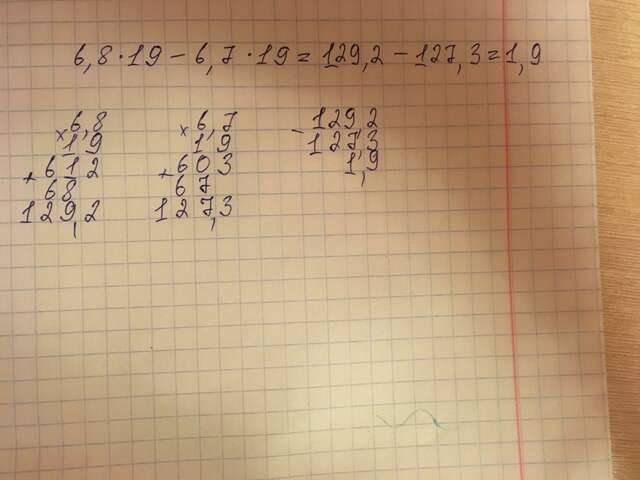 6,8 · 19 − 6,7 · 19 = 129,2 − 127,3 = 1,9
× 6,8
19
+ 612
68
129,2
× 6,7
19
+ 603
67
127,3
− 129,2
127,3
1,9